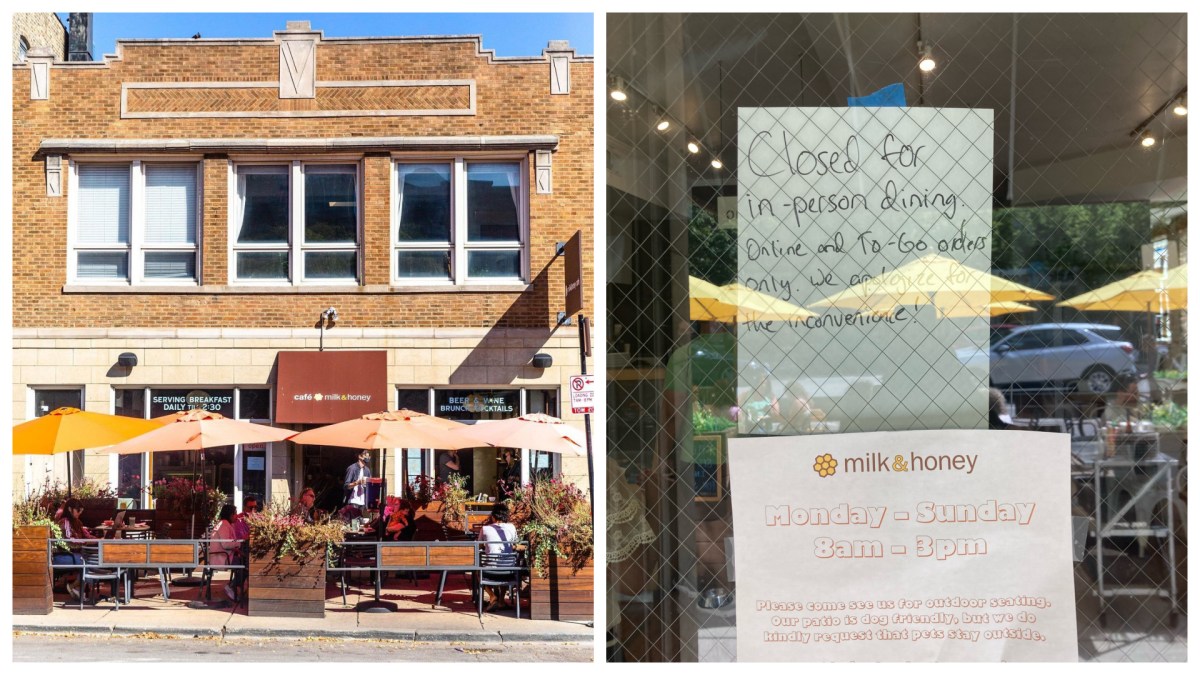 SERVING BREAKFAST
DAILY TIL 2:30
café milk&honey
BEER WINE
BRUNCH COCKTAILS
Closed for
in-person dining.
Online and To-Go orders
only. We apologize for
the inconvenience!
milk&honey
Monday - Sunday
8am - 3pm
Please come see us for outdoor seating.
Our patio is dog friendly, but we do
kindly request that pets stay outside.